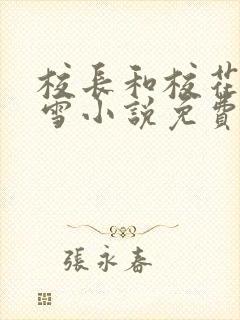 校長和校花
雪小說免費
張永春